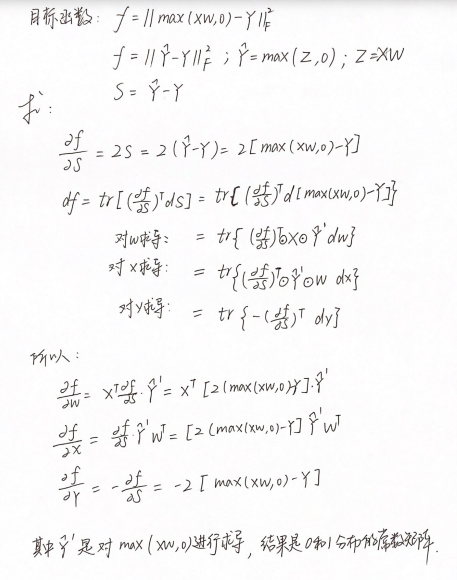 目标函数: f = ‖max(XW,0)-Y‖²_F
f = ‖Ŷ-Y‖²_F ; Ŷ = max(Z,0) ; Z=XW
S = Ŷ-Y
求:
∂f/∂S = 2S = 2(Ŷ-Y) = 2[max(XW,0)-Y]
df = tr[(∂f/∂S)ᵀdS] = tr{(∂f/∂S)ᵀd[max(XW,0)-Y]}
对W求导: = tr{(∂f/∂S)ᵀ⊙X⊙Ŷ'dW}
对X求导: = tr{(∂f/∂S)ᵀ⊙Ŷ'⊙W dX}
对Y求导: = tr{-(∂f/∂S)ᵀ dY}
所以:
∂f/∂W = Xᵀ ∂f/∂S · Ŷ' = Xᵀ[2(max(XW,0)-Y]·Ŷ'
∂f/∂X = ∂f/∂S · Ŷ'Wᵀ = [2(max(XW,0)-Y] Ŷ'Wᵀ
∂f/∂Y = -∂f/∂S = -2[max(XW,0)-Y]
其中Ŷ'是对max(XW,0)进行求导, 结果是0和1分布的常数矩阵.